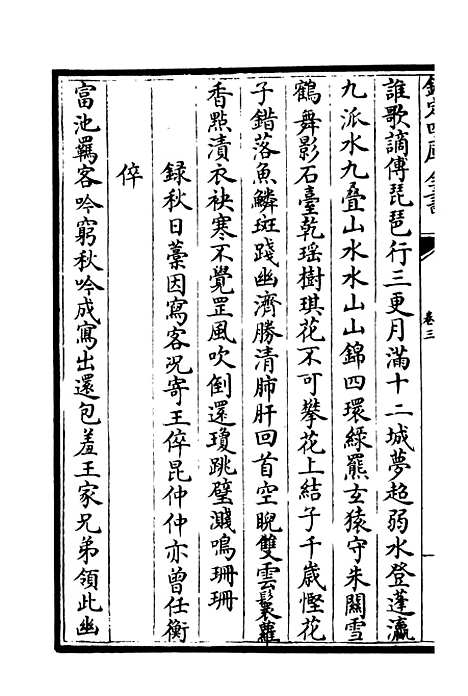 誰歌謫傳琵琶行三更月滿十二城夢超弱水登蓬瀛
九派水九叠山水水山山錦四環綠羆玄猿守朱關雪
鶴舞影石臺乾瑤樹琪花不可攀花上結子千歲慳花
子錯落魚鱗斑踐幽濟勝清肺肝回首空睨雙雲鬟蘿
香點漬衣袂寒不覺罡風吹倒還瓊跳璧濺鳴珊珊
録秋日藁因寫客况寄王倅昆仲仲亦曾任衡
倅
富池羈客吟窮秋吟成寫出還包羞王家兄弟領此幽
卷三